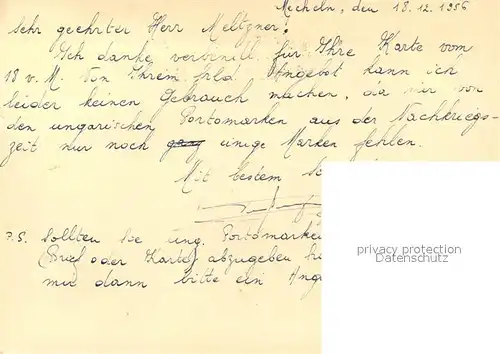 Mecheln, den 18.12.1956
Sehr geehrter Herr Meltzner!
Ich danke verbindl. für Ihre Karte vom
18 v. M. Von Ihrem frld. Angebot kann ich
leider keinen Gebrauch machen, da mir von
den ungarischen Portomarken aus der Nachkriegs-
zeit nur noch ganz einige Marken fehlen.
Mit bestem
P.S. Sollten Sie ung. Portomarken
Brief oder Karte) abzugeben
mir dann bitte ein Ange
privacy protection
Datenschutz